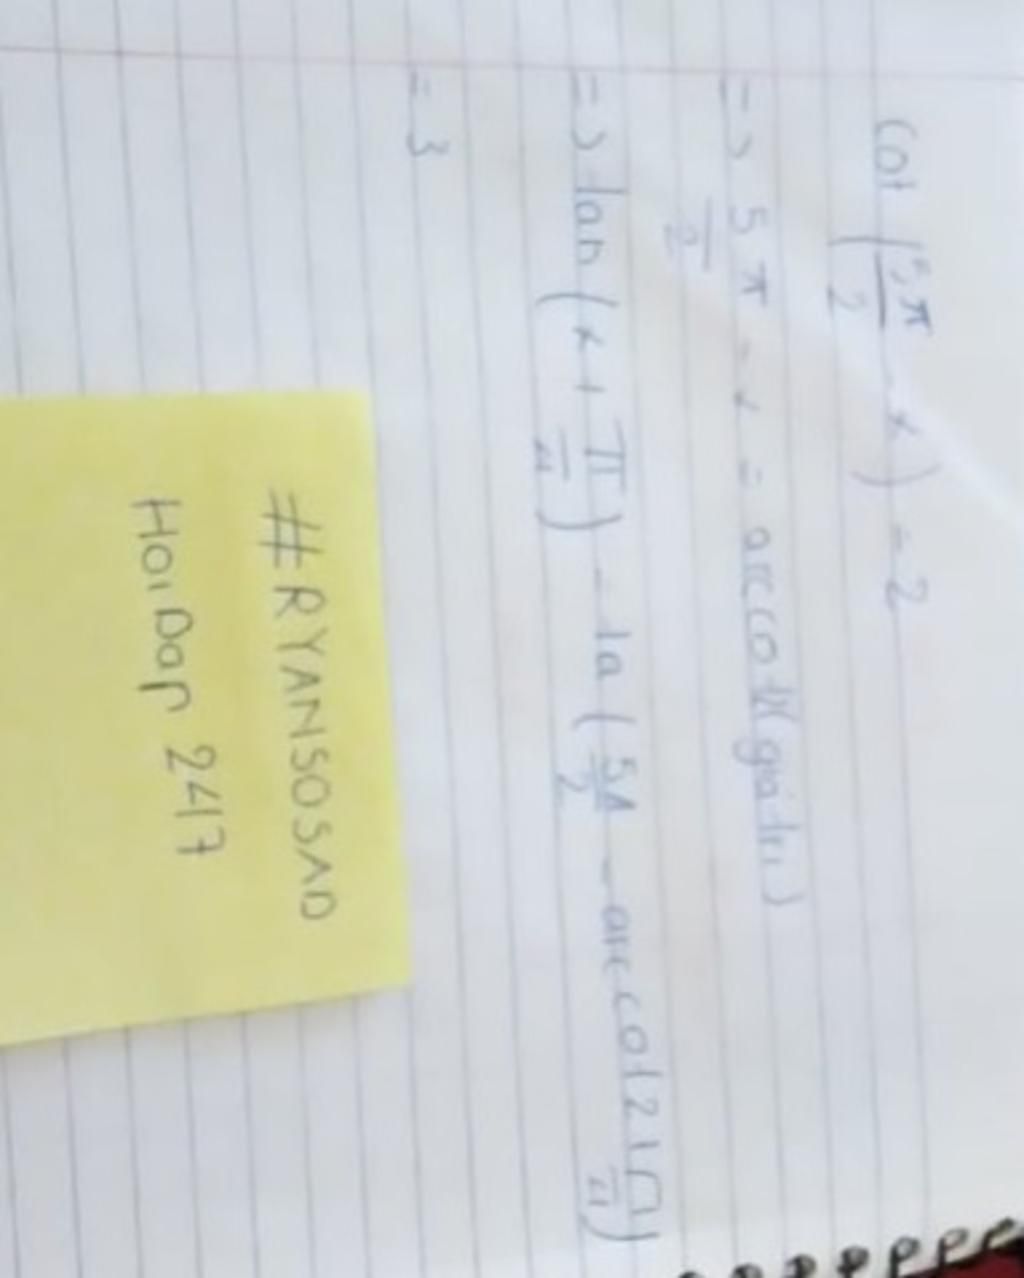 cot (5π/2 - x) = 2
=> 5π/2 - x = arccot2 (giá trị)
=> tan (x + π/4) = ta (5π/2 - arccot2 + π/4)
= 3
#RYANSOSAD
HOIDAP 247